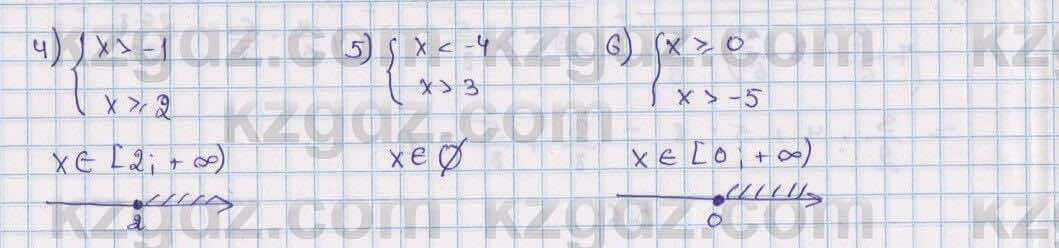 4) { x > -1
x ≥ 2
x ∈ [2; +∞)
2
5) { x < -4
x > 3
x ∈ Ø
6) { x ≥ 0
x > -5
x ∈ [0; +∞)
0
kzgdz.com
kzgdz.com
kzgdz.com
kzgdz.com
kzgdz.com